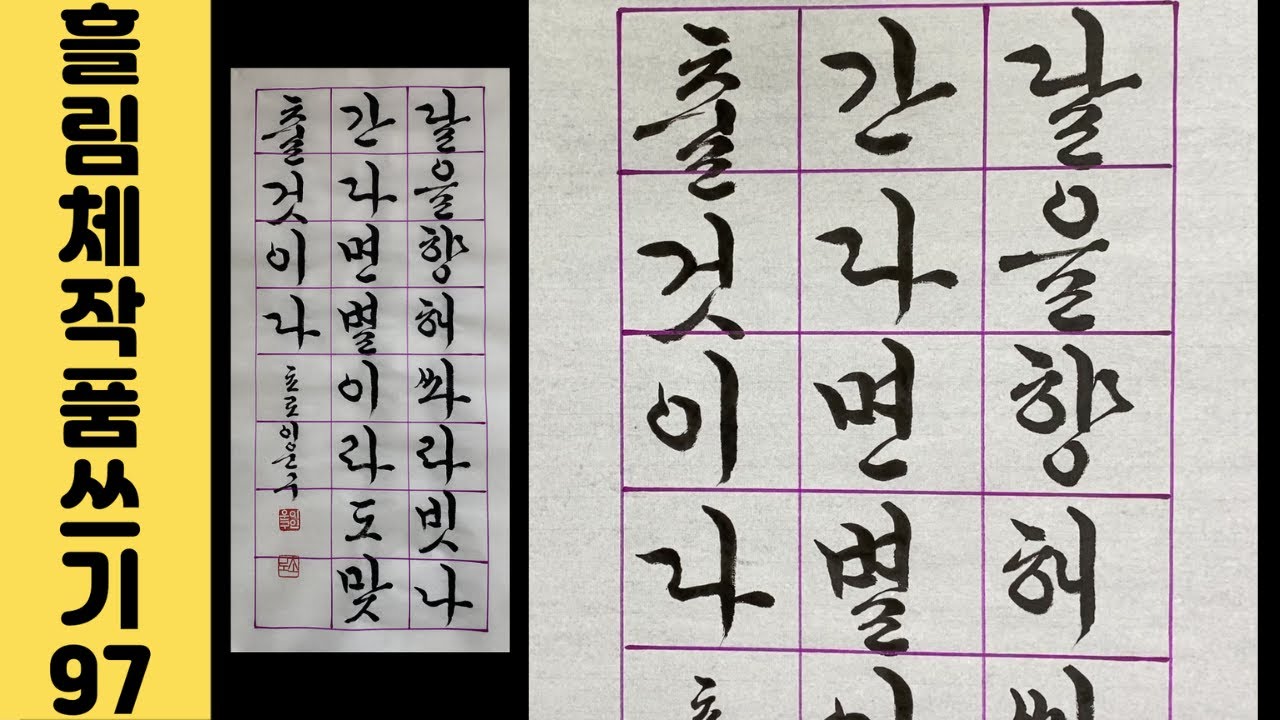 흘림체작품쓰기97
달을향해쏴라빗나
간다면별이라도맞
출것이다
달을향해
간다면별이
출것이다